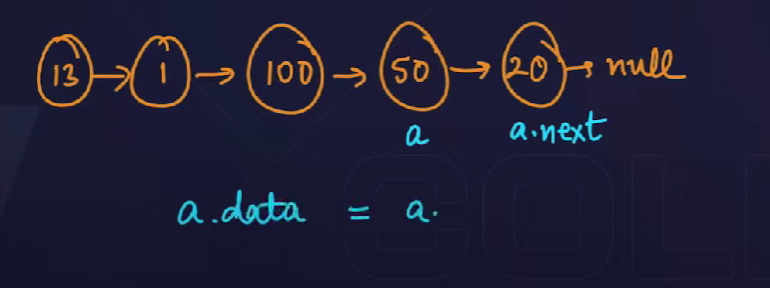 13 → 1 → 100 → 50 → 20 → null
a a.next
a.data = a.
COLL